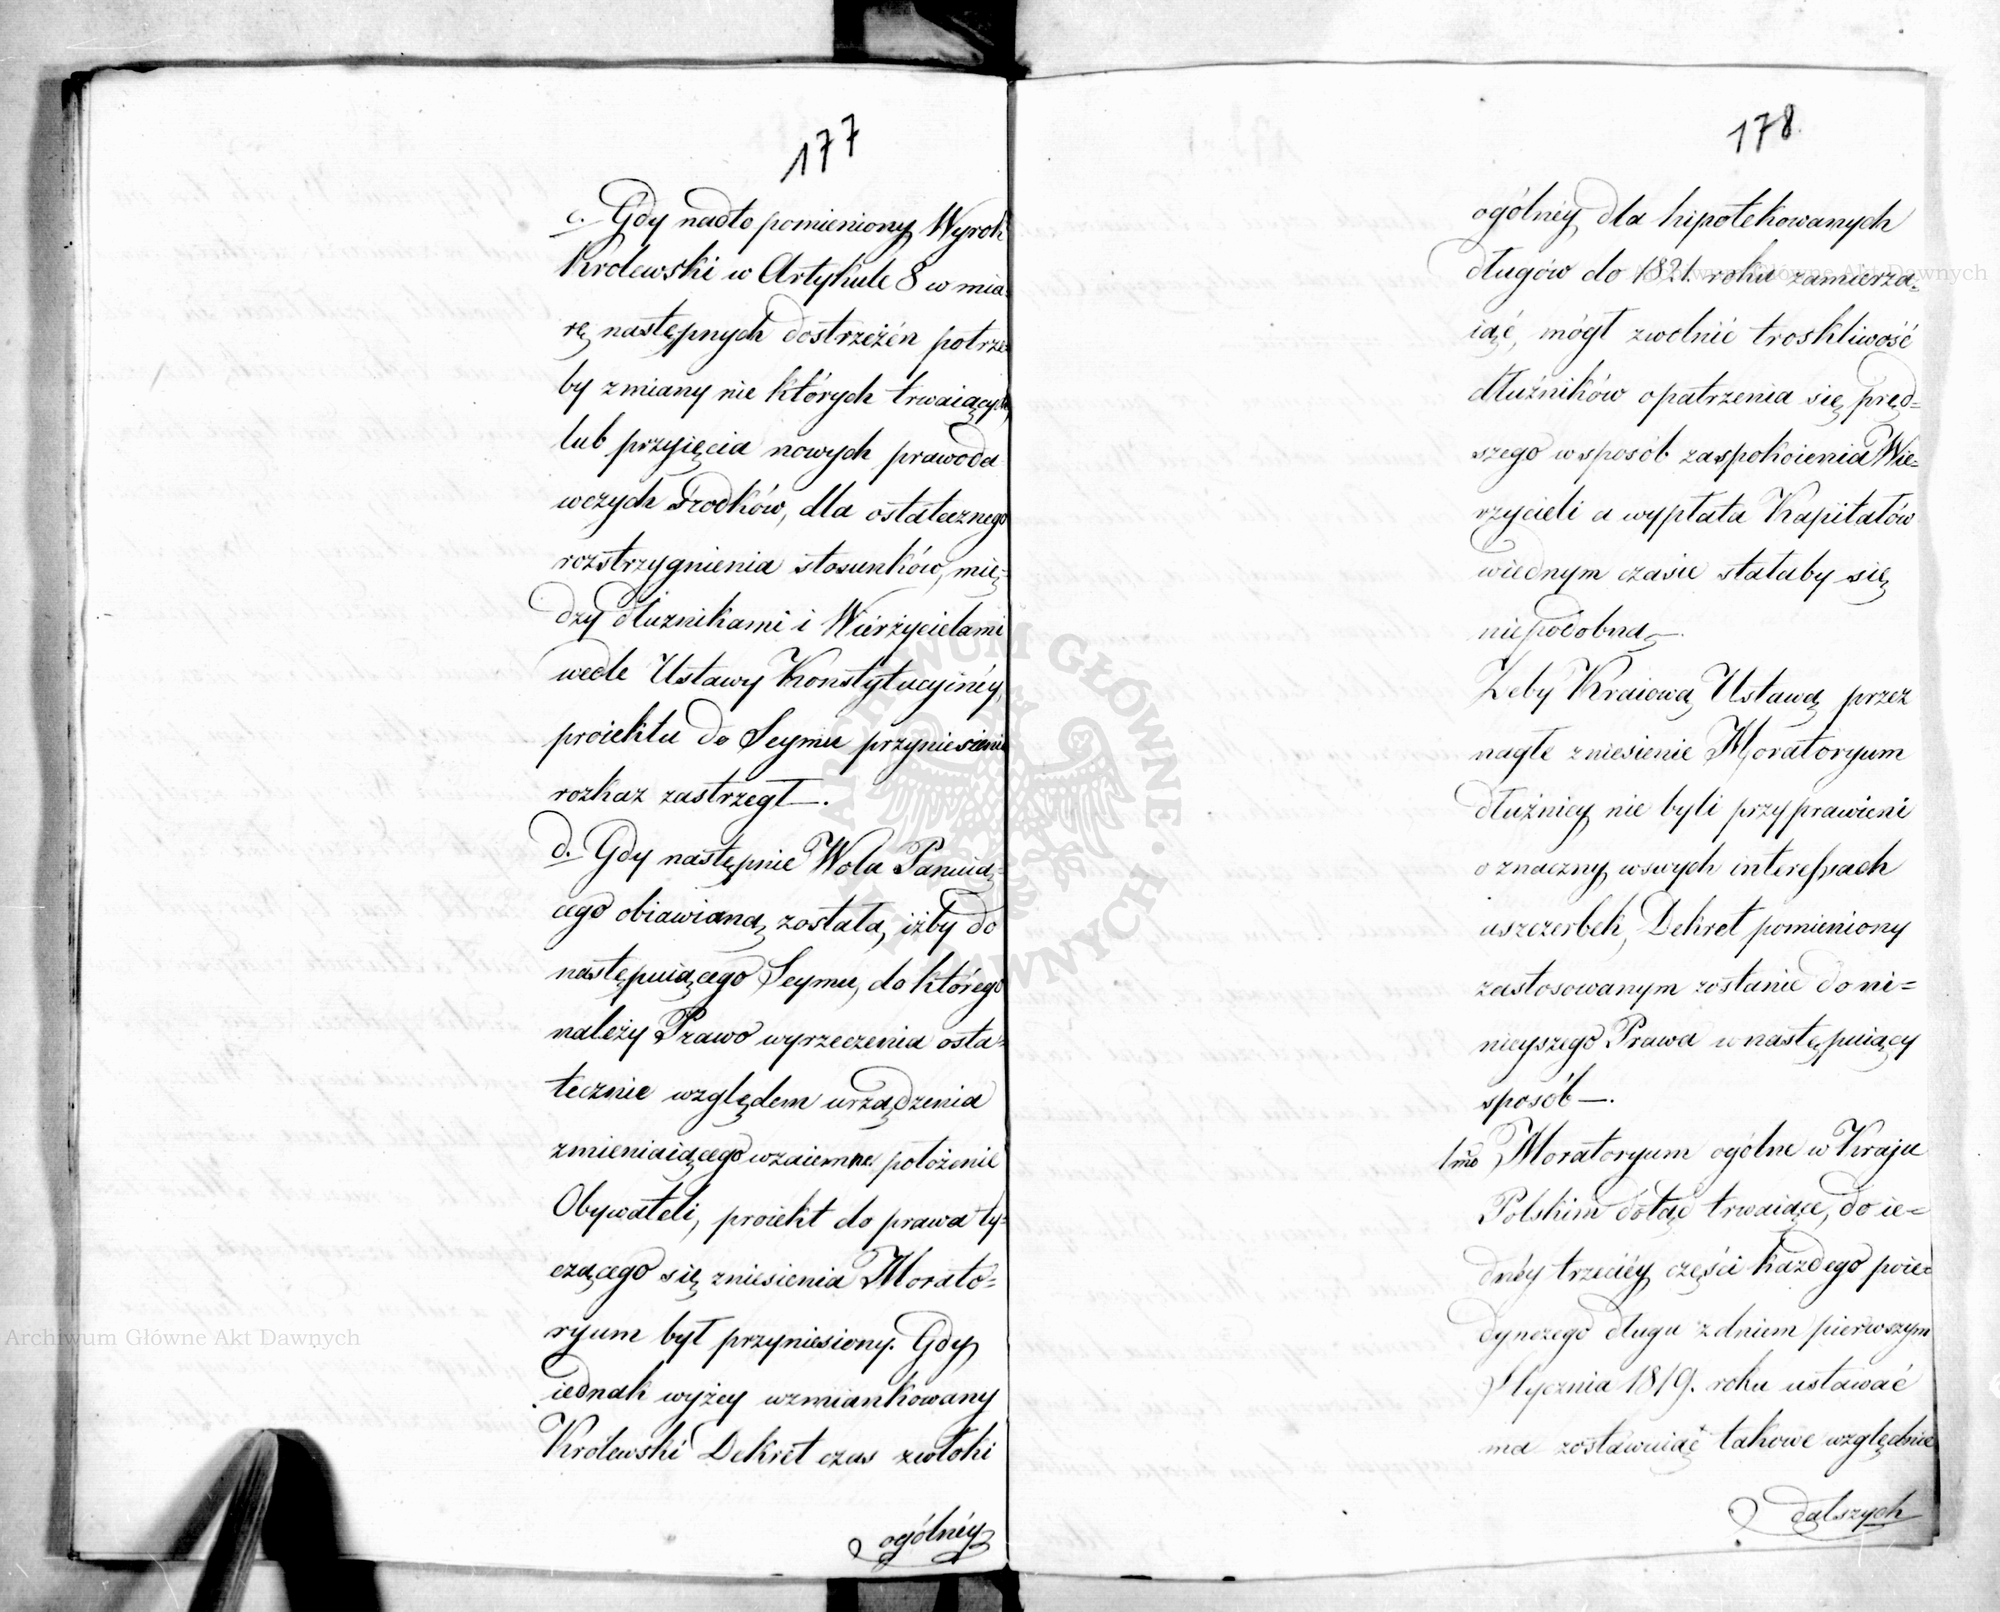 177
c. Gdy nadto pomieniony Wyrok
Krolewski w Artykule 8 w mia
rę następnych dostrzeżén potrze
by zmiany nie których trwaiących
lub przyięcia nowych prawoda
wczych srodków, dla ostatecznego
rozstrzygnienia stosunków, mię=
dzy dłuznikami i Wierzycielami
wedle Ustawy Konstytucyinéy,
proiektu do Seymu przyniesienie
rozkaz zastrzegł—.
d. Gdy następnie Wola Panuią=
cego obiawianą została, iżby do
następuiącego Seymu, do którego
należy Prawo wyrzeczenia osta=
tecznie względem urządzenia
zmieniaiącego wzaiemne położenie
Obywateli, proiekt do prawa ty=
czącego się zniesienia Morato=
ryum był przyniesiony. Gdy
iednak wyżey wzmiankowany
Krolewski Dekret czas zwłoki
ogólnéy
178.
ogólnéy dla hipotekowanych
długów do 1821. roku zamierza=
iąć, mógł zwolnić troskliwość
dłużników opatrzenia się pręd=
szego w sposób zaspokoienia Wie=
rzycieli a wypłata Kapitałów
w iednym czasie stałaby się
niepodobną—.
Zeby Kraiową Ustawą przez
nagłe zniesienie Moratoryum
dłużnicy nie byli przyprawieni
o znaczny w swych interessach
uszczerbek, Dekret pomieniony
zastosowanym zostanie do ni=
nieyszego Prawa w następuiący
sposób—.
1mo Moratoryum ogólne w Kraju
Polskim dotąd trwaiące, do ie=
dnéy trzeciéy części każdego poie=
dynczego długu z dniem pierwszym
Stycznia 1819. roku ustawać
ma zostawuiąć takowe względnie
dalszych
Archiwum Główne Akt Dawnych
Archiwum Główne Akt Dawnych
ARCHIWUM GŁÓWNE AKT DAWNYCH